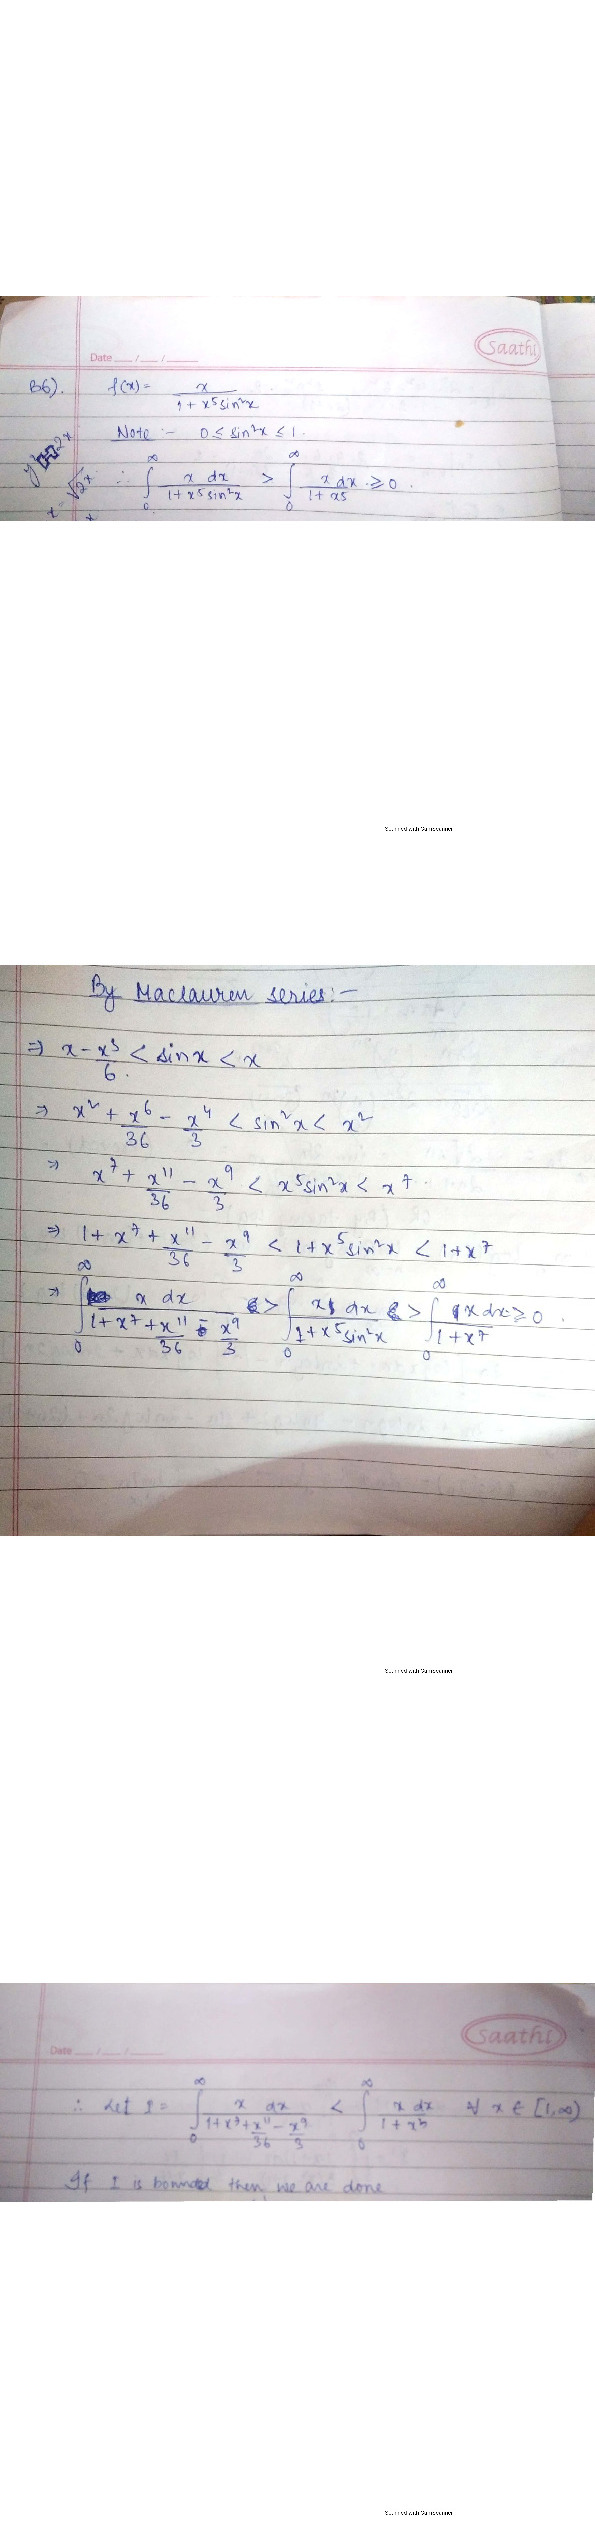 Saathi
Date __ / __ / ____
B6). f(x) = x / (1 + x⁵ sin²x)
Note :- 0 ≤ sin²x ≤ 1.
∴ ∫₀^∞ x dx / (1 + x⁵ sin²x) > ∫₀^∞ x dx / (1 + x5) ≥ 0.
Scanned with CamScanner
By Maclauren series:-
⇒ x - x³/6 < sin x < x
⇒ x² + x⁶/36 - x⁴/3 < sin²x < x²
⇒ x⁷ + x¹¹/36 - x⁹/3 < x⁵ sin²x < x⁷.
⇒ 1 + x⁷ + x¹¹/36 - x⁹/3 < 1 + x⁵ sin²x < 1 + x⁷
⇒ ∫₀^∞ x dx / (1 + x⁷ + x¹¹/36 - x⁹/3) > ∫₀^∞ x dx / (1 + x⁵ sin²x) > ∫₀^∞ x dx / (1 + x⁷) ≥ 0.
Scanned with CamScanner
Saathi
Date __ / __ / ____
∴ Let I = ∫₀^∞ x dx / (1 + x⁷ + x¹¹/36 - x⁹/3) < ∫₀^∞ x dx / (1 + x³) ∀ x ∈ [1, ∞)
If I is bounded then we are done
Scanned with CamScanner